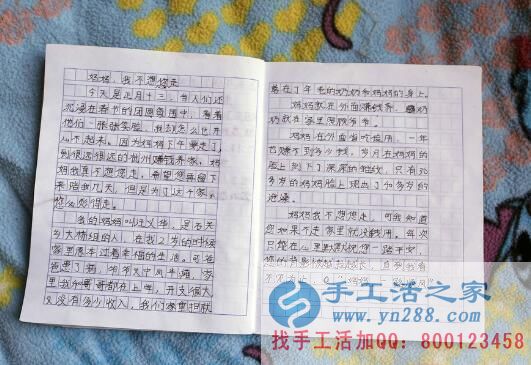 妈妈,我不想您走
今天是正月十三,当人们还
沉浸在春节的团圆氛围中,看着
他们一张张笑脸,我却怎么也开
心不起来。因为妈妈下午要走了,
到很远很远的 州赚钱养家,妈
妈我真不想您走,希望您再留下
来陪我几天,但是为了这个家
您必须得走。
我的妈妈叫 义华,是
乡大桥组的人,在我2岁的时候
家里原本过着幸福的生活,可爸
爸患了病, 干风半瘫,家里
里我和哥哥都在上学,开支很大
又没有多少收入,我们家重担就
落在了年老的奶奶和妈妈的身上。
妈妈就在外面赚钱养家,奶奶
就在家里照顾爸爸。
妈妈在外面省吃俭用,一年
也赚不到多少钱,岁月在妈妈的
脸上刻下了深深的 纹,只有30
多岁的妈妈脸上现出了40多岁的
沧桑。
妈妈我不想您走,可我知道
您如果不走家里就没钱用。每次
只能在心里默默说您一路平安,
您的背影
手工活之家
www.yn288.com
找手工活加QQ:800123458